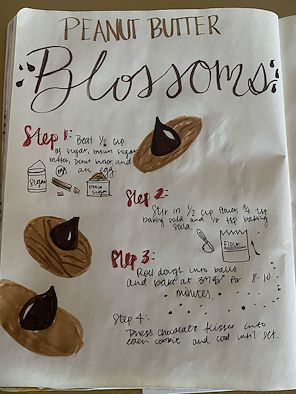 PEANUT BUTTER
Blossoms
Step 1: Beat 1/2 cup
of sugar, brown sugar
butter, peanut butter, and
an egg.
sugar
brown
sugar
Step 2:
Stir in 1/2 cup flour, 3/4 cup
baking soda and 1/2 tsp baking
soda.
Flour
Step 3
Roll dough into balls
and bake at for 8-10
minutes.
Step 4:
Press chocolate kisses into
each cookie and cool until set.